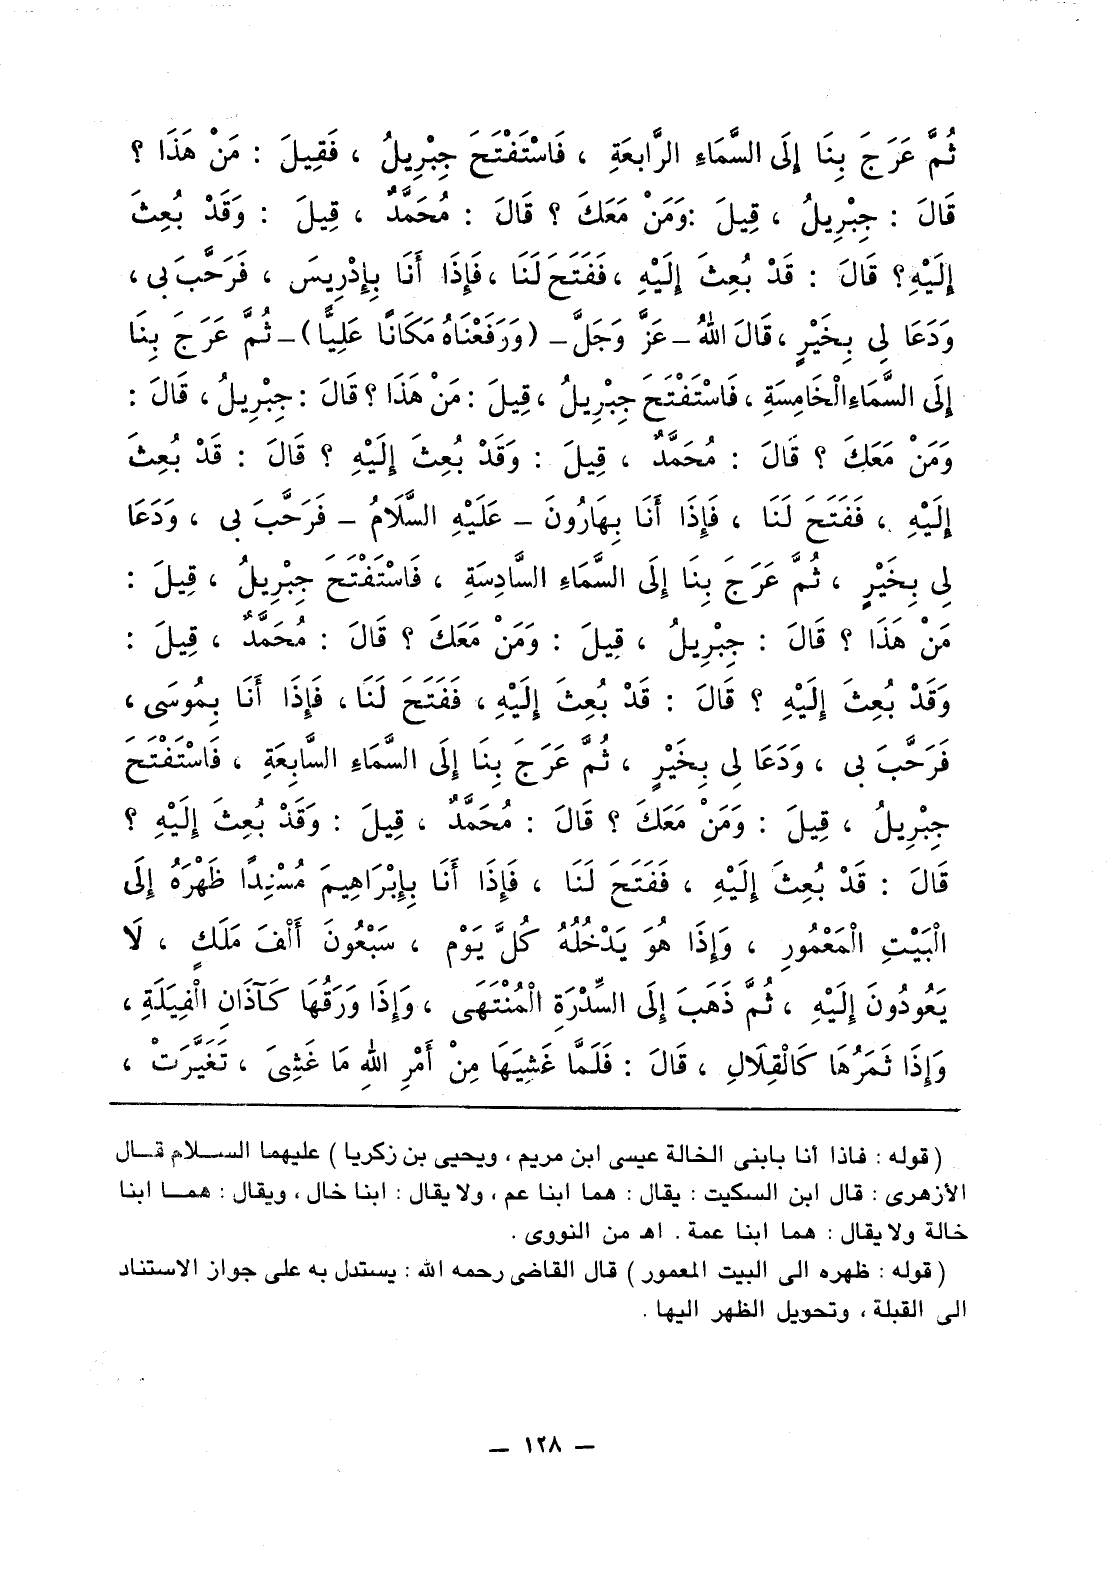 ثُمَّ عَرَجَ بِنَا إِلَى السَّمَاءِ الرَّابِعَةِ ، فَاسْتَفْتَحَ جِبْرِيلُ ، فَقِيلَ : مَنْ هَذَا ؟
قَالَ : جِبْرِيلُ ، قِيلَ :وَمَنْ مَعَكَ ؟ قَالَ : مُحَمَّدٌ ، قِيلَ : وَقَدْ بُعِثَ
إِلَيْهِ؟ قَالَ : قَدْ بُعِثَ إِلَيْهِ ،فَفَتَحَ لَنَا ،فَإِذَا أَنَا بِإِدْرِيسَ ، فَرَحَّبَ بِى ،
وَدَعَا لِى بِخَيْرٍ ،قَالَ اللهُ ـ عَزَّ وَجَلَّ ـ (وَرَفَعْنَاهُ مَكَانًا عَلِيًّا) ـ ثُمَّ عَرَجَ بِنَا
إِلَى السَّمَاءِ الْخَامِسَةِ ، فَاسْتَفْتَحَ جِبْرِيلُ ، قِيلَ : مَنْ هَذَا ؟ قَالَ : جِبْرِيلُ ، قَالَ :
وَمَنْ مَعَكَ ؟ قَالَ : مُحَمَّدٌ ، قِيلَ : وَقَدْ بُعِثَ إِلَيْهِ ؟ قَالَ : قَدْ بُعِثَ
إِلَيْهِ ، فَفَتَحَ لَنَا ، فَإِذَا أَنَا بِهَارُونَ ـ عَلَيْهِ السَّلَامُ ـ فَرَحَّبَ بِى ، وَدَعَا
لِى بِخَيْرٍ ، ثُمَّ عَرَجَ بِنَا إِلَى السَّمَاءِ السَّادِسَةِ ، فَاسْتَفْتَحَ جِبْرِيلُ ، قِيلَ :
مَنْ هَذَا ؟ قَالَ : جِبْرِيلُ ، قِيلَ : وَمَنْ مَعَكَ ؟ قَالَ : مُحَمَّدٌ ، قِيلَ :
وَقَدْ بُعِثَ إِلَيْهِ ؟ قَالَ : قَدْ بُعِثَ إِلَيْهِ ، فَفَتَحَ لَنَا ، فَإِذَا أَنَا بِمُوسَى ،
فَرَحَّبَ بِى ، وَدَعَا لِى بِخَيْرٍ ، ثُمَّ عَرَجَ بِنَا إِلَى السَّمَاءِ السَّابِعَةِ ، فَاسْتَفْتَحَ
جِبْرِيلُ ، قِيلَ : وَمَنْ مَعَكَ ؟ قَالَ : مُحَمَّدٌ ، قِيلَ : وَقَدْ بُعِثَ إِلَيْهِ ؟
قَالَ : قَدْ بُعِثَ إِلَيْهِ ، فَفَتَحَ لَنَا ، فَإِذَا أَنَا بِإِبْرَاهِيمَ مُسْنِدًا ظَهْرَهُ إِلَى
الْبَيْتِ الْمَعْمُورِ ، وَإِذَا هُوَ يَدْخُلُهُ كُلَّ يَوْمٍ ، سَبْعُونَ أَلْفَ مَلَكٍ ، لَا
يَعُودُونَ إِلَيْهِ ، ثُمَّ ذَهَبَ إِلَى السِّدْرَةِ الْمُنْتَهَى ، وَإِذَا وَرَقُهَا كَآذَانِ الْفِيَلَةِ ،
وَإِذَا ثَمَرُهَا كَالْقِلَالِ ، قَالَ : فَلَمَّا غَشِيَهَا مِنْ أَمْرِ اللهِ مَا غَشِىَ ، تَغَيَّرَتْ ،
( قوله : فاذا أنا بابنى الخالة عيسى ابن مريم ، ويحيى بن زكريا ) عليهما السلام قال
الأزهرى : قال ابن السكيت : يقال : هما ابنا عم ، ولا يقال : ابنا خال ، ويقال : هما ابنا
خالة ولا يقال : هما ابنا عمة . اهـ من النووى .
( قوله : ظهره الى البيت المعمور ) قال القاضى رحمه الله : يستدل به على جواز الاستناد
الى القبلة ، وتحويل الظهر اليها .
— ١٢٨ —